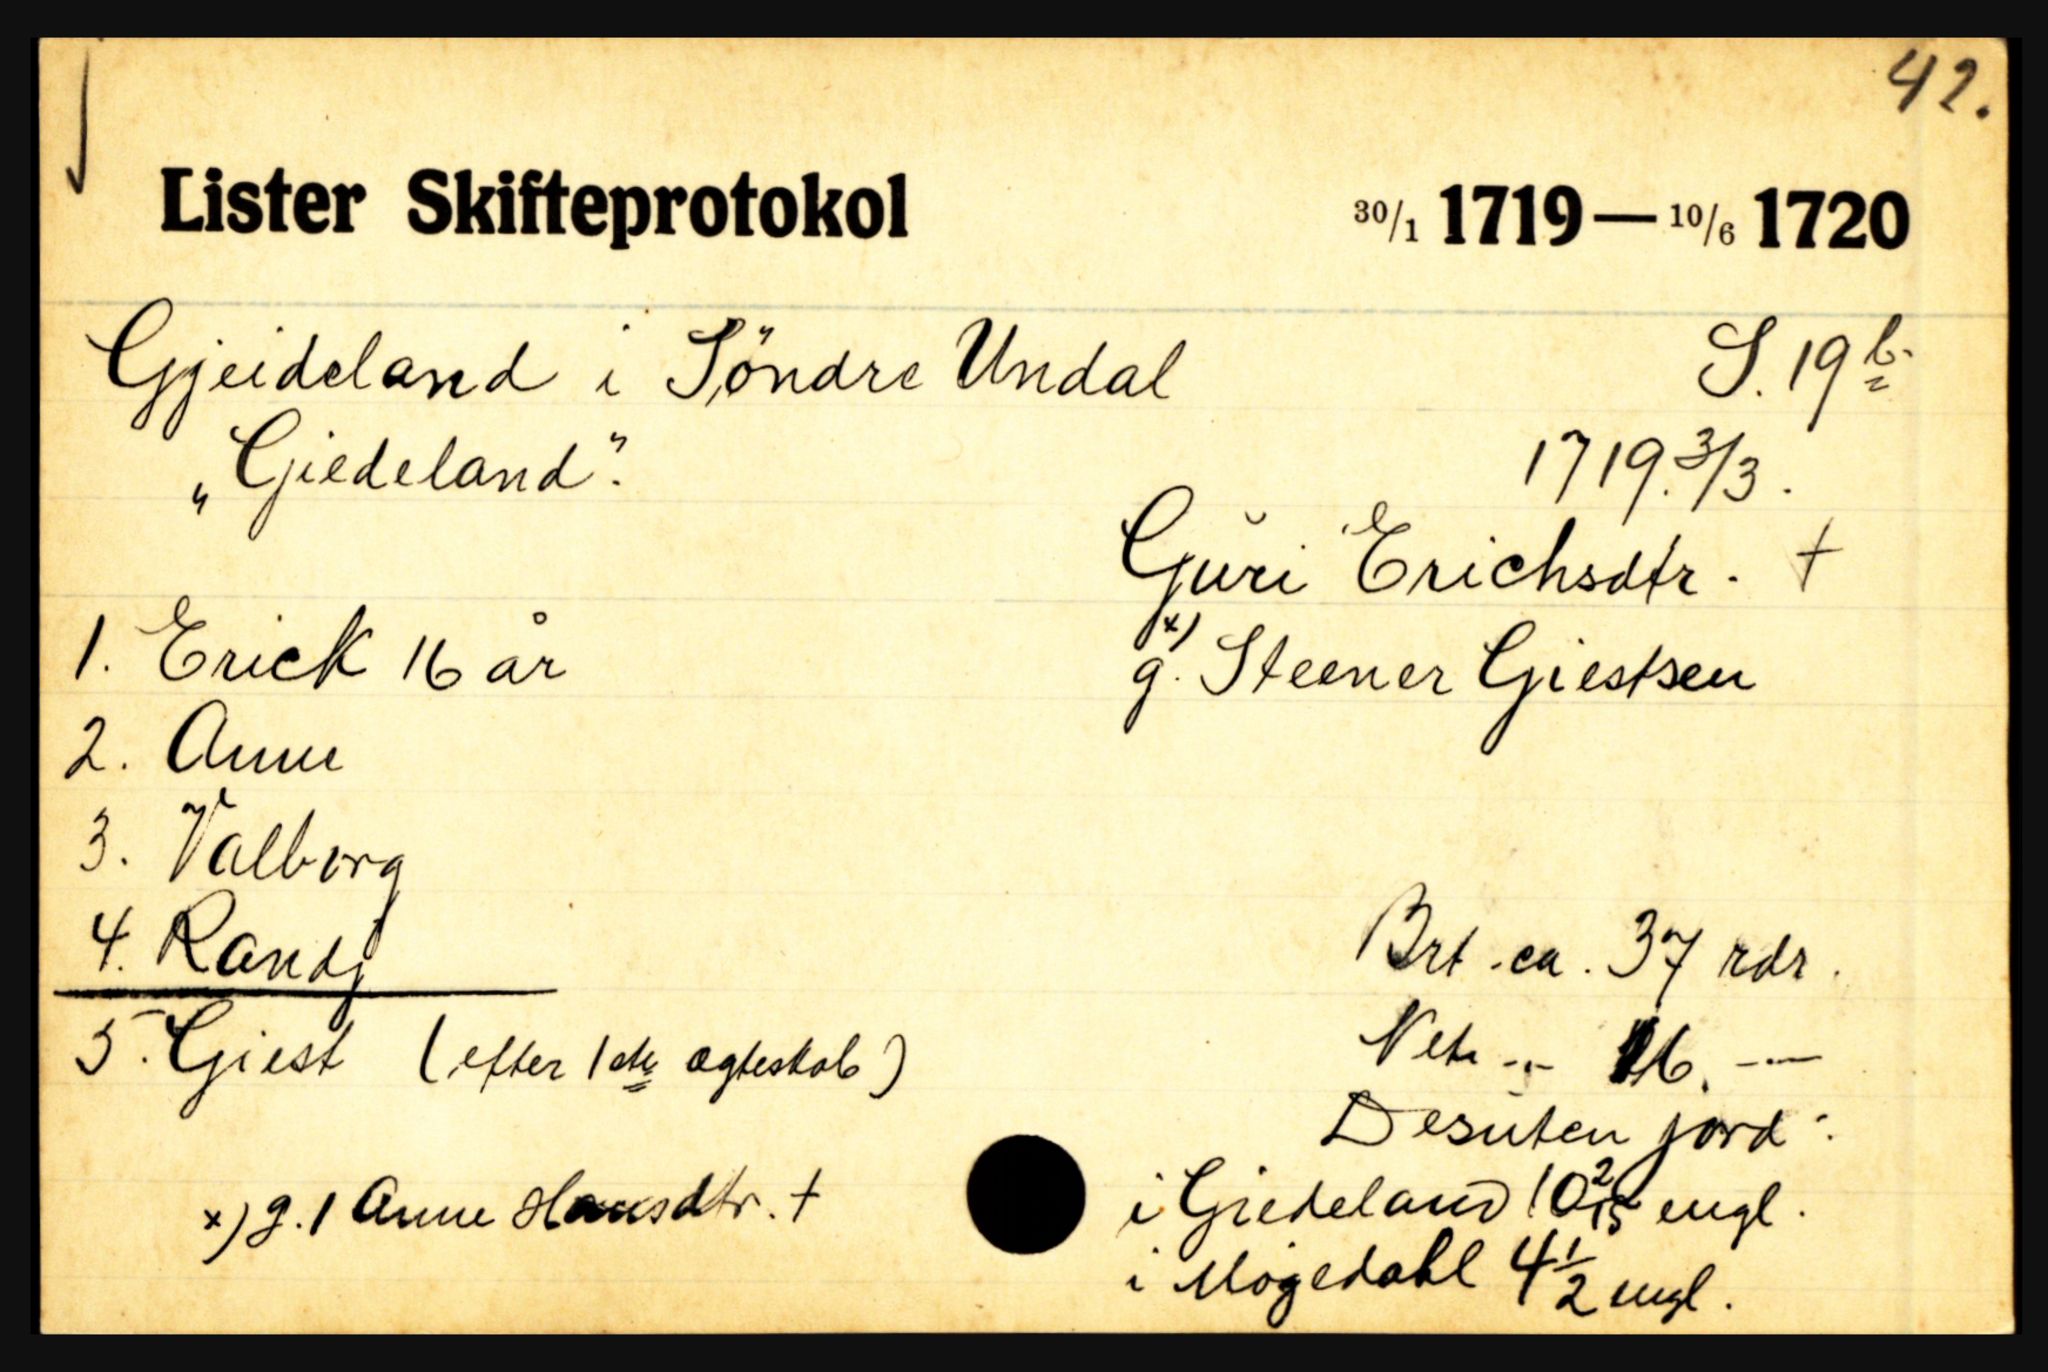 42.
Lister Skifteprotokol 30/1 1719 — 10/6 1720
Gjeideland i Söndre Undal S. 19 b.
„Giedeland". 1719. 3/3.
Guri Erichsdtr. †
1. Erick 16 år
x) g. Steener Giestsen
2. Anne
3. Valborg
4. Randj
Brt. ca. 37 rdr.
5. Giest (efter 1ste ægteskab)
Nett -"- 16. -"-
Desuten jord:
x) g. 1 Anne Hansdtr. †
i Giedeland 10 2/15 engl.
i Mögedahl 4 1/2 engl.